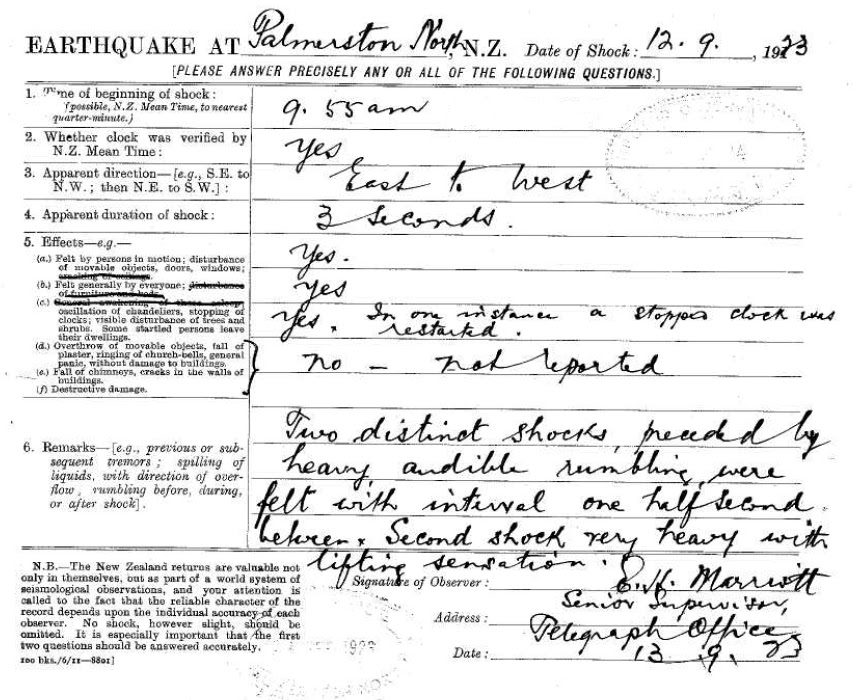 EARTHQUAKE AT Palmerston North, N.Z. Date of Shock: 12. 9. , 1923
[PLEASE ANSWER PRECISELY ANY OR ALL OF THE FOLLOWING QUESTIONS.]
1. Time of beginning of shock:
(possible, N.Z. Mean Time, to nearest
quarter-minute.)
9. 55 am
2. Whether clock was verified by
N.Z. Mean Time:
Yes
3. Apparent direction—[e.g., S.E. to
N.W.; then N.E. to S.W.]:
East to West
4. Apparent duration of shock:
3 seconds.
5. Effects—e.g.—
(a.) Felt by persons in motion; disturbance
of movable objects, doors, windows;
cracking of ceilings.
Yes.
(b.) Felt generally by everyone; disturbance
of furniture and beds.
Yes
(c.) General awakening of those asleep;
oscillation of chandeliers, stopping of
clocks; visible disturbance of trees and
shrubs. Some startled persons leave
their dwellings.
Yes. In one instance a stopped clock was
restarted.
(d.) Overthrow of movable objects, fall of
plaster, ringing of church-bells, general
panic, without damage to buildings.
(e.) Fall of chimneys, cracks in the walls of
buildings.
(f) Destructive damage.
no — not reported
6. Remarks—[e.g., previous or sub-
sequent tremors; spilling of
liquids, with direction of over-
flow, rumbling before, during,
or after shock].
Two distinct shocks, preceded by
heavy audible rumbling, were
felt with interval one half second
between. Second shock very heavy with
lifting sensation.
N.B.—The New Zealand returns are valuable not
only in themselves, but as part of a world system of
seismological observations, and your attention is
called to the fact that the reliable character of the
record depends upon the individual accuracy of each
observer. No shock, however slight, should be
omitted. It is especially important that the first
two questions should be answered accurately.
100 bks./6/11—8801]
Signature of Observer: E. H. Marriott
Senior Supervisor,
Address: Telegraph Office
Date: 13. 9. 23
1923